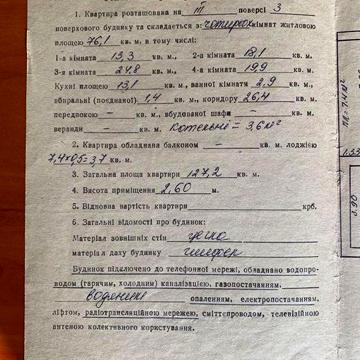 1. Квартира розташована на III поверсі 3
поверхового будинку та складається з чотирьох кімнат житловою
площею 76,1 кв. м, в тому числі:
1-а кімната 13,3 кв. м., 2-а кімната 18,1 кв. м.
3-я кімната 24,8 кв. м., 4-а кімната 19,9 кв. м.
Кухні площею 13,1 кв. м., ванної кімнати 2,9 кв. м.,
вбиральні (поєднаної) 1,4 кв. м., коридору 26,4 кв. м.,
передпокою – кв. м., вбудованої шафи кв. м.,
веранди – кв. м. Котельні = 3,6 м²
2. Квартира обладнана балконом – кв. м. лоджією
7,4х0,5=3,7 кв. м.
3. Загальна площа квартири 127,2 кв. м.
4. Висота приміщення 2,60 м.
5. Відновна вартість квартири крб.
6. Загальні відомості про будинок:
Матеріал зовнішніх стін
матеріал даху будинку шифер
Будинок підключено до телефонної мережі, обладнано водопро-
водом (гарячим, холодним) каналізацією, газопостачанням,
опаленням, електропостачанням,
ліфтом, радіотрансляційною мережею, сміттєпроводом, телевізійною
антеною колективного користування.